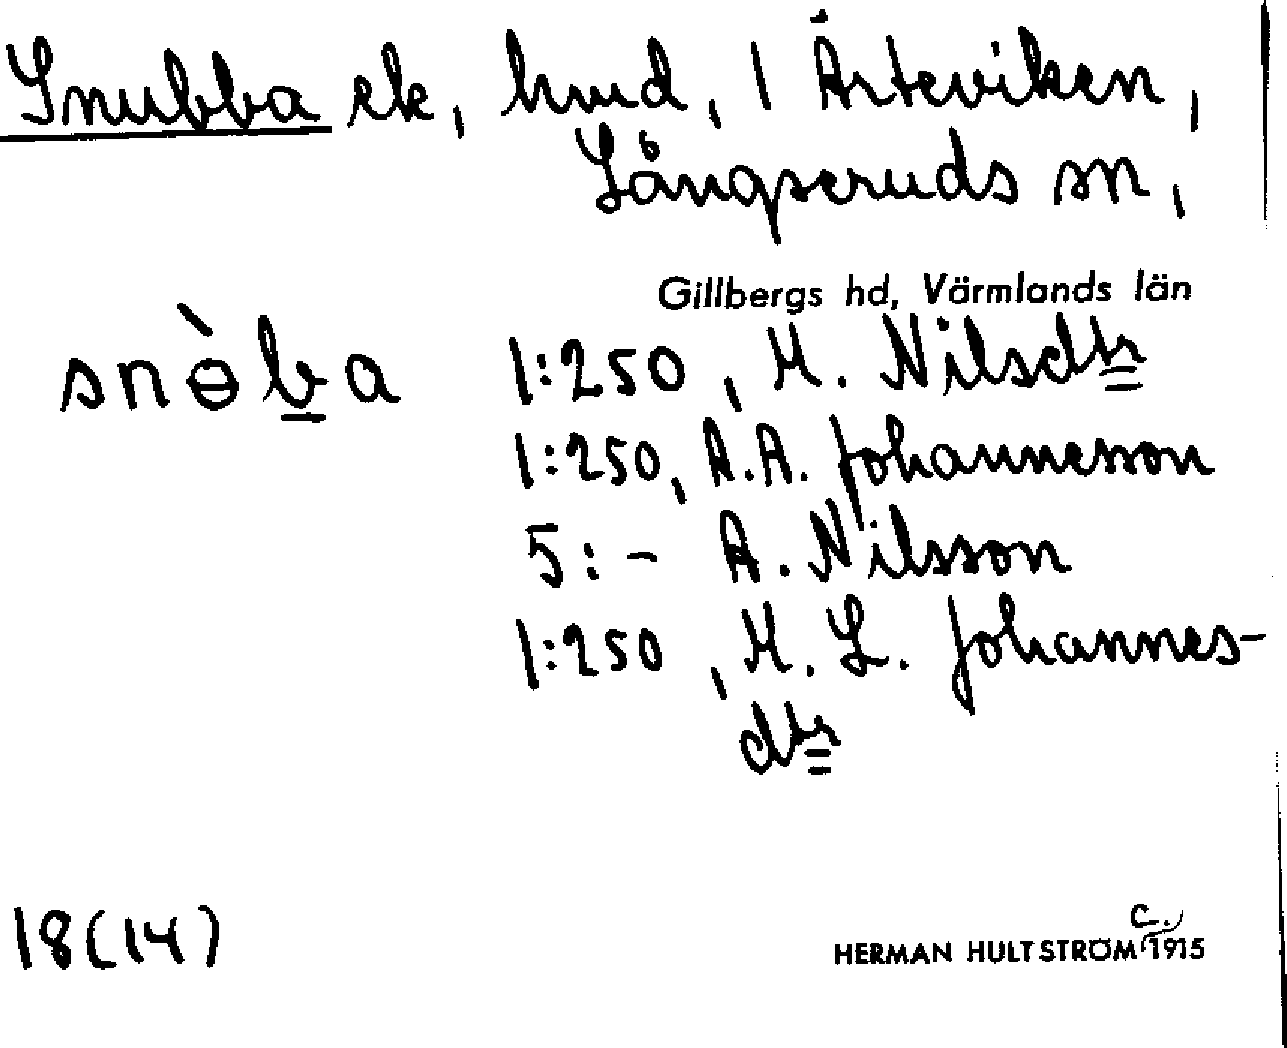 Snubba ek, hmd, 1 Ärteviken,
Långseruds sn,
Gillbergs hd, Värmlands län
snɵ̀b̲a 1:250, M. Nilsdtr
1:250, A.A. Johannesson
5:- A. Nilsson
1:250, M. L. Johannes-
dtr
18(14)
HERMAN HULTSTRÖM c. 1915